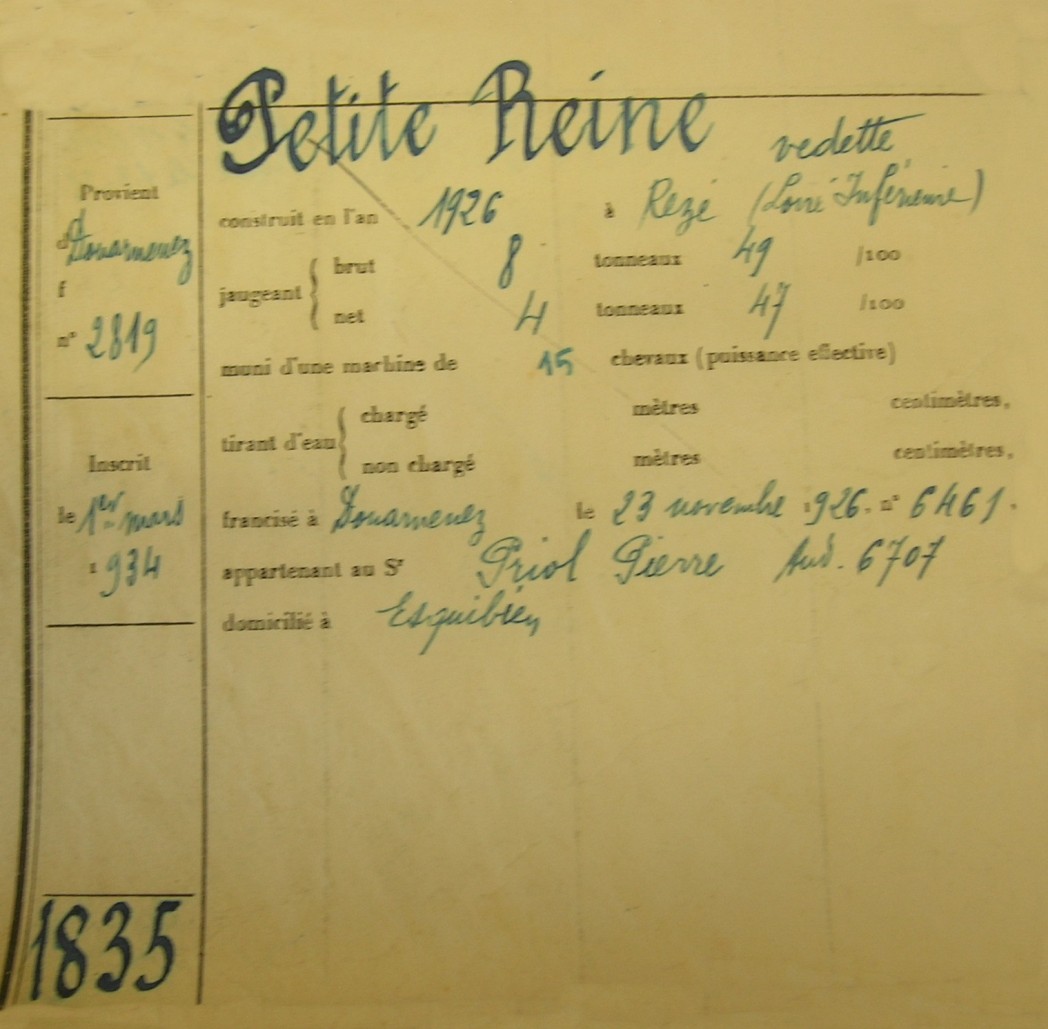 Petite Reine
vedette
Provient
d'Douarnenez
f
n° 2819
construit en l'an 1926 à Rezé (Loire Inférieure)
jaugeant
brut 8 tonneaux 49 /100
net 4 tonneaux 47 /100
muni d'une machine de 15 chevaux (puissance effective)
tirant d'eau
chargé mètres centimètres,
non chargé mètres centimètres,
Inscrit
le 1er mars
1934
francisé à Douarnenez le 23 novembre 1926. n° 6461.
appartenant au Sr Priol Pierre Aud. 6707
domicilié à Esquibien
1835